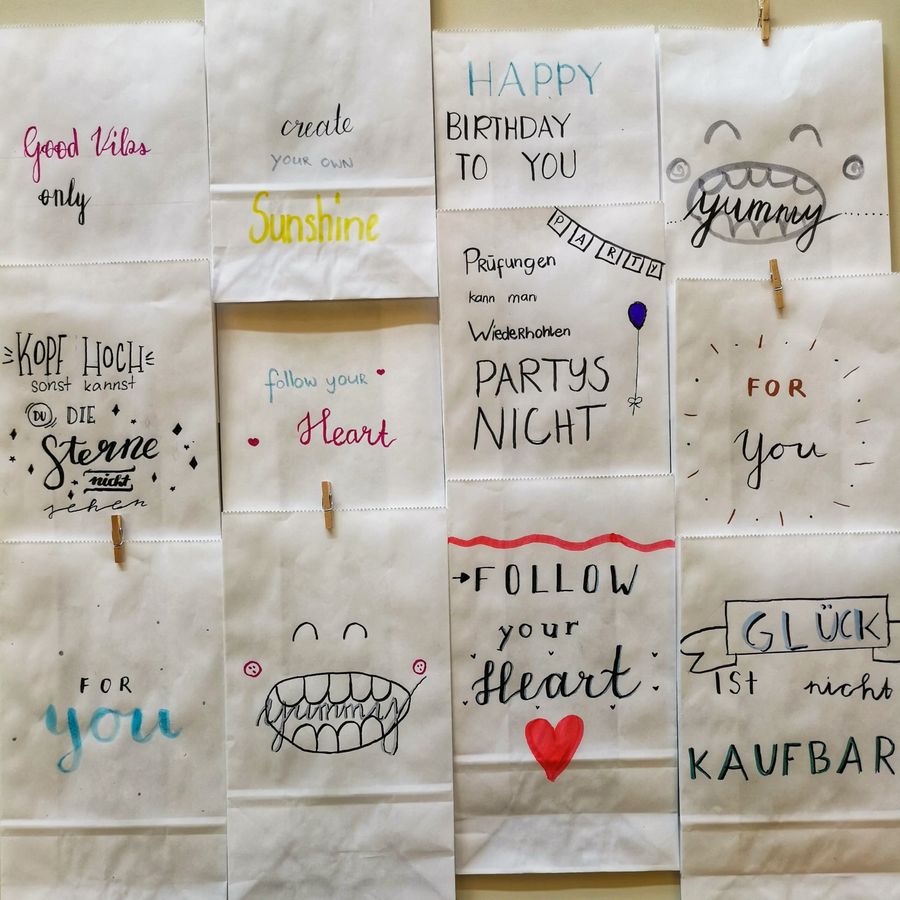 Good Vibs
only
create
YOUR OWN
Sunshine
HAPPY
BIRTHDAY
TO YOU
yummy
KOPF HOCH
sonst kannst
DU DIE
Sterne
nicht
sehen
follow your
Heart
PARTY
Prüfungen
kann man
Wiederhohlen
PARTYS
NICHT
FOR
You
FOR
you
yummy
FOLLOW
your
Heart
GLÜCK
ist nicht
KAUFBAR